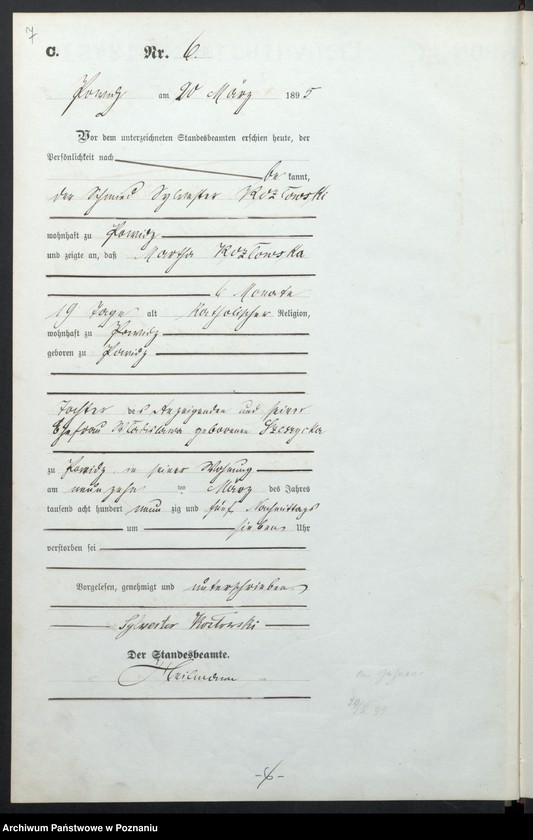 7
C.
Nr. 6
Powidz am 20 März 1895
Vor dem unterzeichneten Standesbeamten erschien heute, der
Persönlichkeit nach
be kannt,
der Schmied Sylvester Kozłowski
wohnhaft zu Powidz
und zeigte an, daß Martha Kozłowska
6 Monate
19 Tage alt katholischer Religion,
wohnhaft zu Powidz
geboren zu Powidz
Tochter des Anzeigenden und seiner
Ehefrau Wladislawa geborenen
zu Powidz in seiner Wohnung
am neunzehn ten März des Jahres
tausend acht hundert neun zig und fünf Nachmittags
um sieben Uhr
verstorben sei
Vorgelesen, genehmigt und unterschrieben
Sylvester Kozłowski
Der Standesbeamte.
Heilmann
-6-
Archiwum Państwowe w Poznaniu